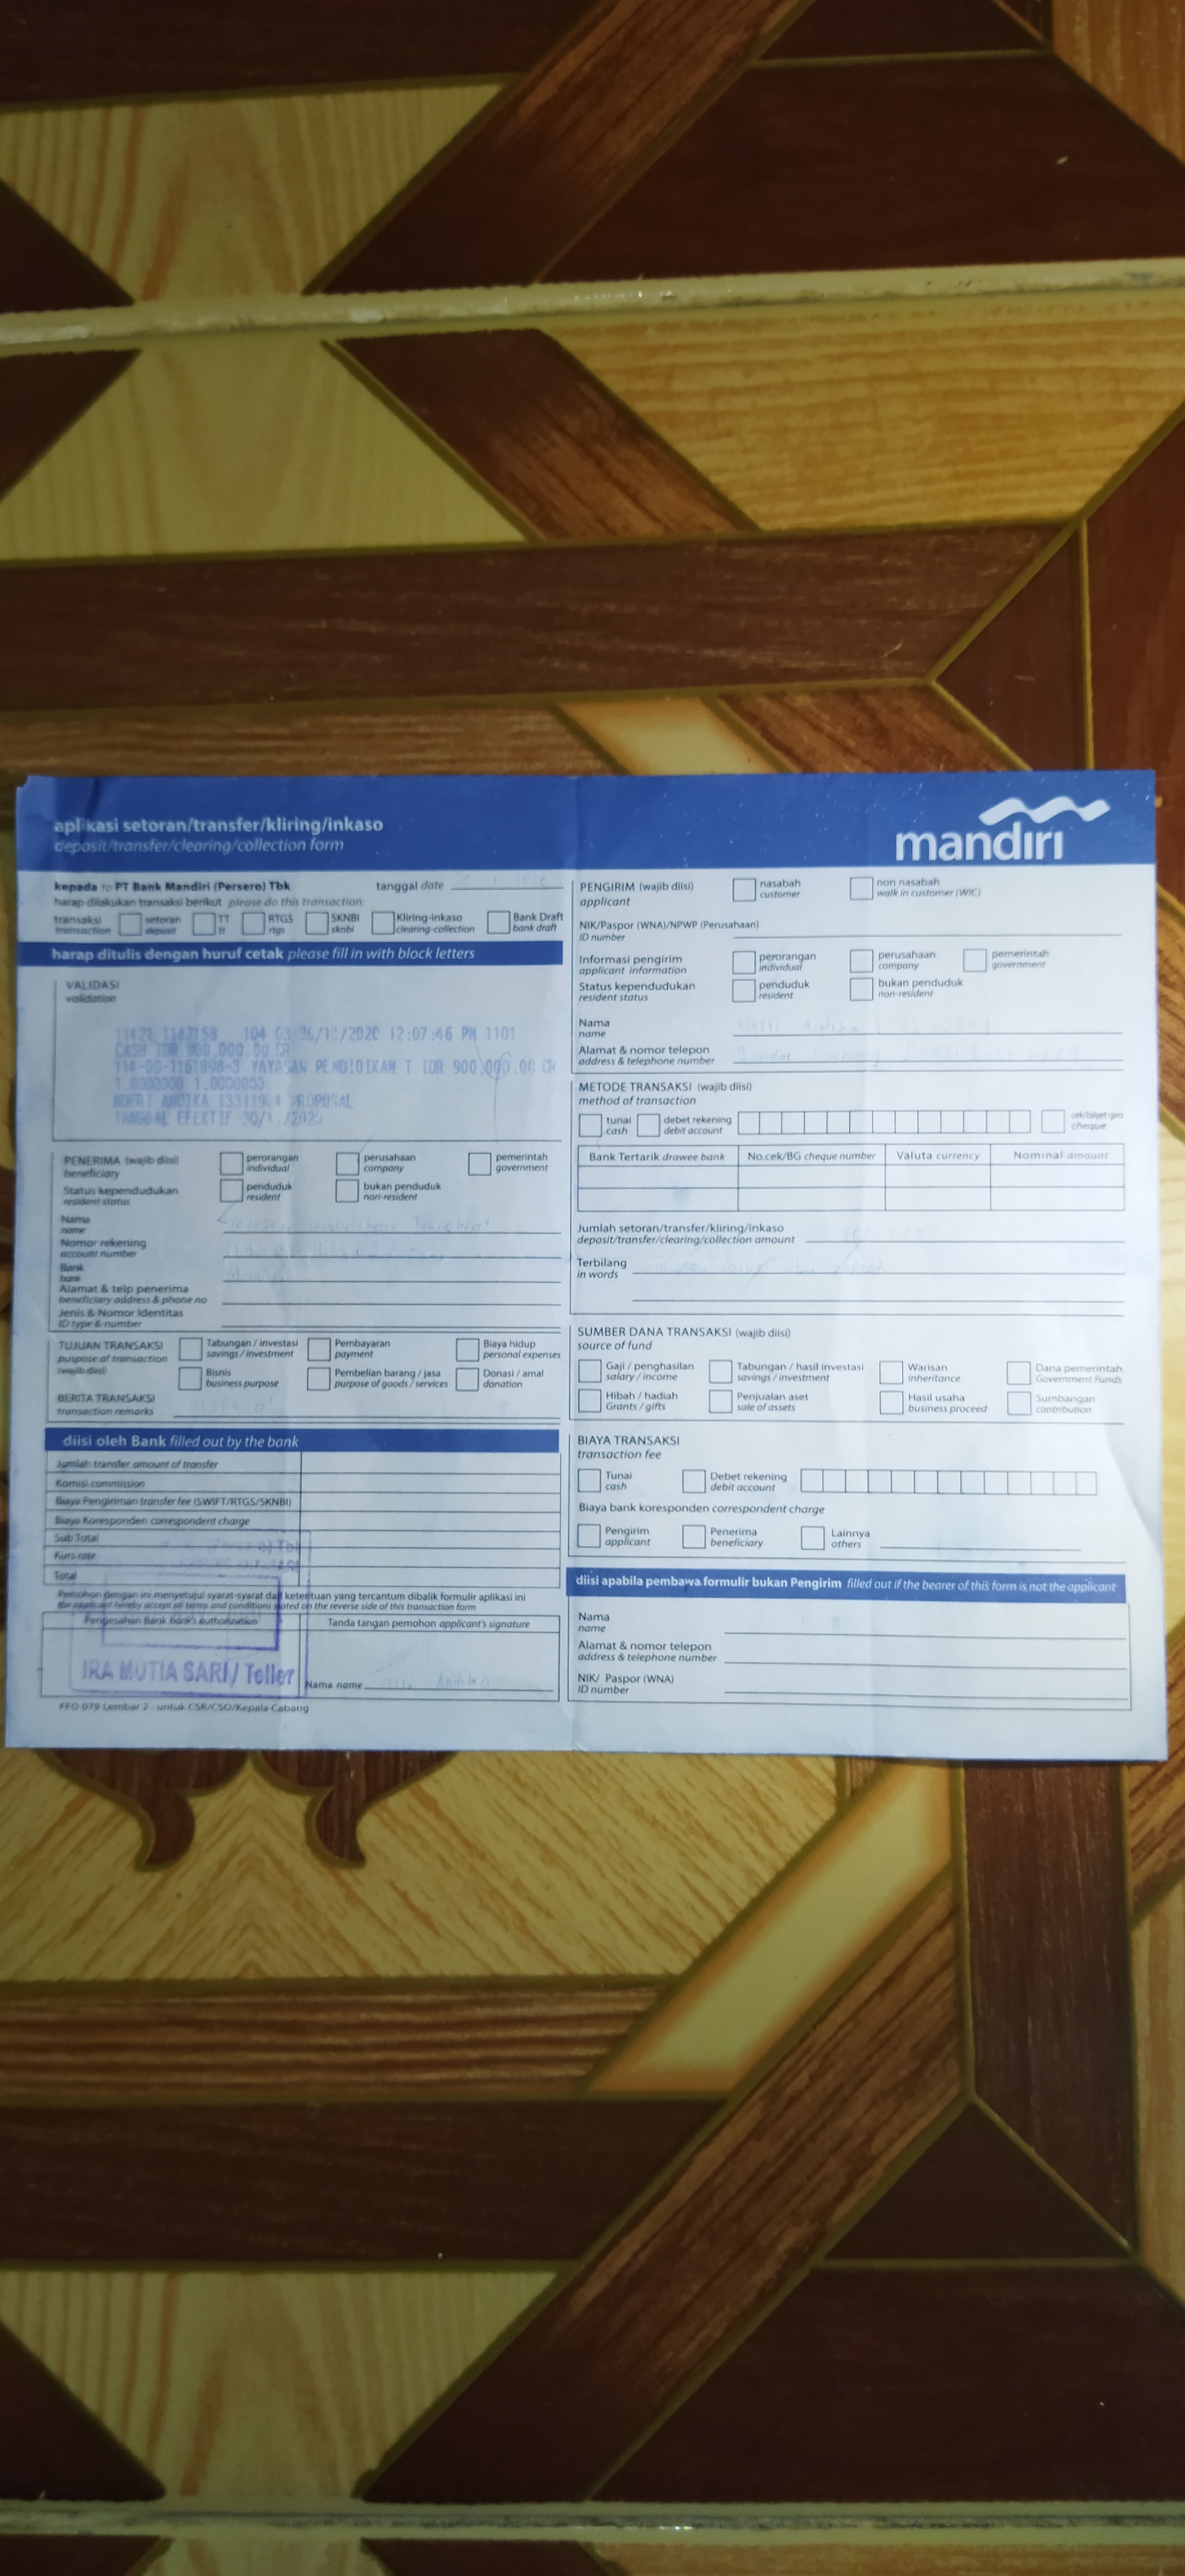 aplikasi setoran/transfer/kliring/inkaso
deposit/transfer/clearing/collection form
mandiri
kepada to PT Bank Mandiri (Persero) Tbk
tanggal date
harap dilakukan transaksi berikut please do this transaction:
transaksi transaction
setoran deposit
TT tt
RTGS rtgs
SKNBI sknbi
Kliring-inkaso clearing-collection
Bank Draft bank draft
harap ditulis dengan huruf cetak please fill in with block letters
VALIDASI
validation
12:07:46 PM 1101
CASH IDR 900,000.00
YAYASAN PENDIDIKAN T IDR 900,000.00 CR
1.0000000 1.0000000
ANDIKA PROPOSAL
TANGGAL EFEKTIF
PENERIMA (wajib diisi)
beneficiary
perorangan individual
perusahaan company
pemerintah government
Status kependudukan
resident status
penduduk resident
bukan penduduk non-resident
Nama
name
Nomor rekening
account number
Bank
bank
Alamat & telp penerima
beneficiary address & phone no
Jenis & Nomor Identitas
ID type & number
TUJUAN TRANSAKSI
puspose of transaction
(wajib diisi)
Tabungan / investasi savings / investment
Pembayaran payment
Biaya hidup personal expenses
Bisnis business purpose
Pembelian barang / jasa purpose of goods / services
Donasi / amal donation
BERITA TRANSAKSI
transaction remarks
diisi oleh Bank filled out by the bank
Jumlah transfer amount of transfer
Komisi commission
Biaya Pengiriman transfer fee (SWIFT/RTGS/SKNBI)
Biaya Koresponden correspondent charge
Sub Total
Kurs rate
Total
Pemohon dengan ini menyetujui syarat-syarat dan ketentuan yang tercantum dibalik formulir aplikasi ini
the applicant hereby accept all terms and conditions stated on the reverse side of this transaction form
Pengesahan Bank bank's authorization
Tanda tangan pemohon applicant's signature
IRA MUTIA SARI / Teller
Nama name
FFO 079 Lembar 2 : untuk CSR/CSO/Kepala Cabang
PENGIRIM (wajib diisi)
applicant
nasabah customer
non nasabah walk in customer (WIC)
NIK/Paspor (WNA)/NPWP (Perusahaan)
ID number
Informasi pengirim
applicant information
perorangan individual
perusahaan company
pemerintah government
Status kependudukan
resident status
penduduk resident
bukan penduduk non-resident
Nama
name
Alamat & nomor telepon
address & telephone number
METODE TRANSAKSI (wajib diisi)
method of transaction
tunai cash
debet rekening debit account
cek/bilyet giro cheque
Bank Tertarik drawee bank
No.cek/BG cheque number
Valuta currency
Nominal amount
Jumlah setoran/transfer/kliring/inkaso
deposit/transfer/clearing/collection amount
Terbilang
in words
SUMBER DANA TRANSAKSI (wajib diisi)
source of fund
Gaji / penghasilan salary / income
Tabungan / hasil investasi savings / investment
Warisan inheritance
Dana pemerintah Government Funds
Hibah / hadiah Grants / gifts
Penjualan aset sale of assets
Hasil usaha business proceed
Sumbangan contribution
BIAYA TRANSAKSI
transaction fee
Tunai cash
Debet rekening debit account
Biaya bank koresponden correspondent charge
Pengirim applicant
Penerima beneficiary
Lainnya others
diisi apabila pembawa formulir bukan Pengirim filled out if the bearer of this form is not the applicant
Nama
name
Alamat & nomor telepon
address & telephone number
NIK/ Paspor (WNA)
ID number